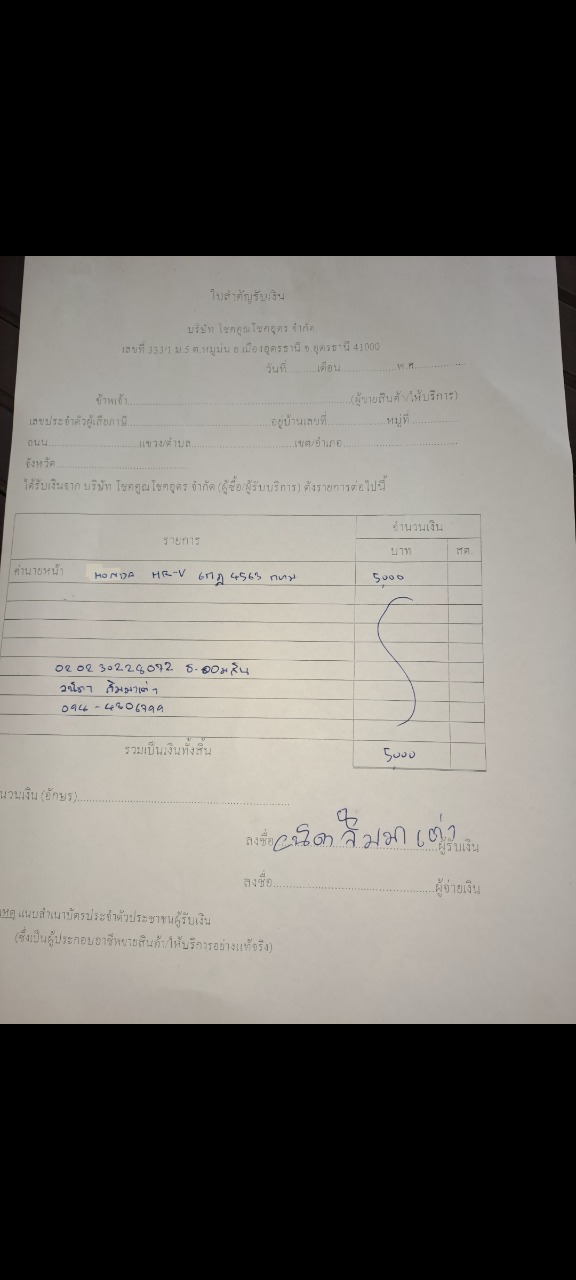 ใบสำคัญรับเงิน
บริษัท โชคคูณโชคอุดร จำกัด
เลขที่ 333/1 ม.5 ต.หมูม่น อ.เมืองอุดรธานี จ.อุดรธานี 41000
วันที่..........เดือน....................พ.ศ...................
ข้าพเจ้า..............................................................(ผู้ขายสินค้า/ให้บริการ)
เลขประจำตัวผู้เสียภาษี........................................อยู่บ้านเลขที่....................หมู่ที่................
ถนน..........................แขวง/ตำบล..............................เขต/อำเภอ..............................
จังหวัด....................................
ได้รับเงินจาก บริษัท โชคคูณโชคอุดร จำกัด (ผู้ซื้อ/ผู้รับบริการ) ดังรายการต่อไปนี้
รายการ จำนวนเงิน
บาท สต.
ค่านายหน้า HONDA HR-V 6กฎ 4563 กทม 5,000
020230228092 ธ.ออมสิน
วนิดา สิมมาเต่า
094-4806799
รวมเป็นเงินทั้งสิ้น 5,000
นวนเงิน (อักษร)............................................................
ลงชื่อ วนิดา สิมมาเต่า ผู้รับเงิน
ลงชื่อ........................................ผู้จ่ายเงิน
เหตุ แนบสำเนาบัตรประจำตัวประชาชนผู้รับเงิน
(ซึ่งเป็นผู้ประกอบอาชีพขายสินค้า/ให้บริการอย่างแท้จริง)